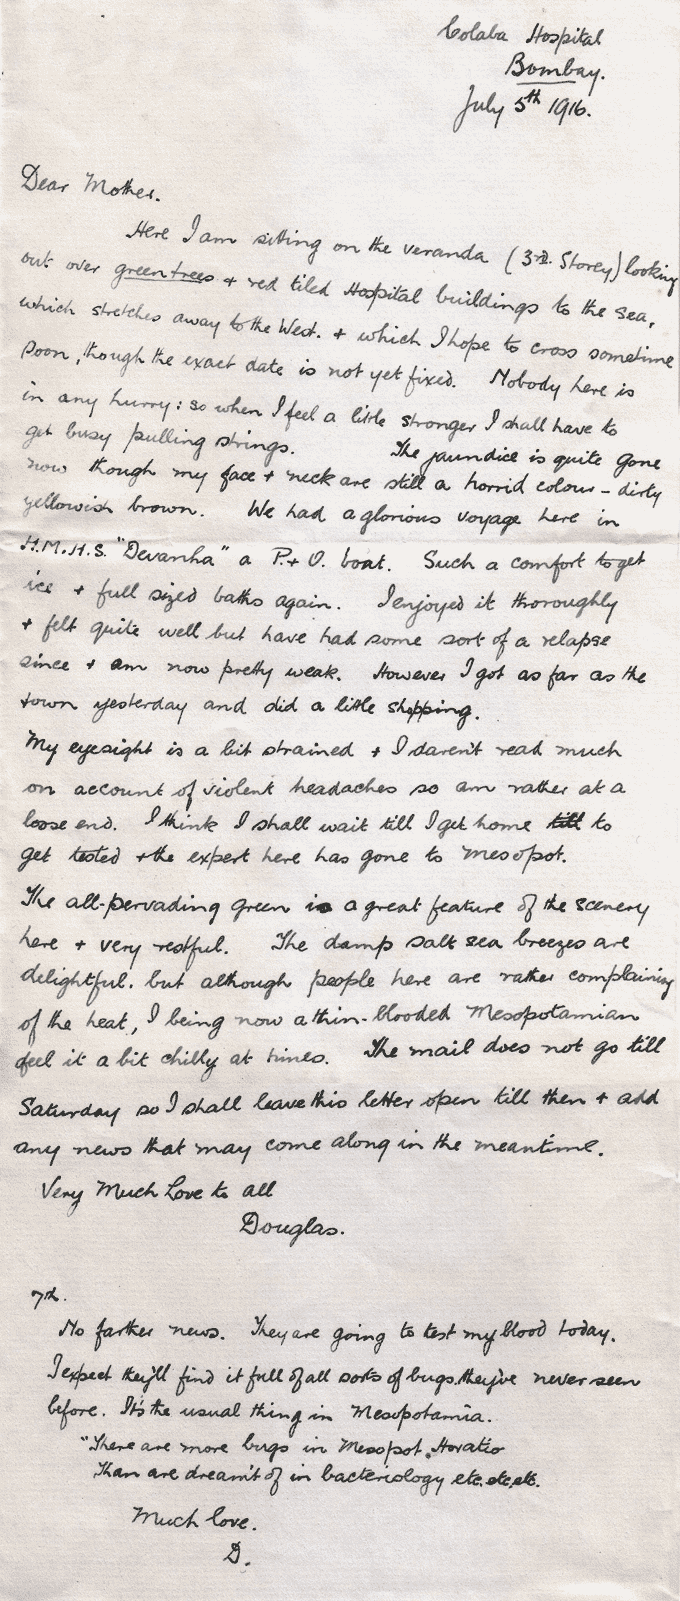 Colaba Hospital
Bombay.
July 5th 1916.
Dear Mother.
Here I am sitting on the veranda (3rd. Storey) looking
out over green trees + red tiled Hospital buildings to the sea,
which stretches away to the West. + which I hope to cross sometime
soon, though the exact date is not yet fixed. Nobody here is
in any hurry: so when I feel a little stronger I shall have to
get busy pulling strings. The jaundice is quite gone
now though my face + neck are still a horrid colour - dirty
yellowish brown. We had a glorious voyage here in
H.M.H.S. "Devanha" a P.+ O. boat. Such a comfort to get
ice + full sized baths again. I enjoyed it thoroughly
+ felt quite well but have had some sort of a relapse
since + am now pretty weak. However I got as far as the
town yesterday and did a little shopping.
My eyesight is a bit strained + I daren't read much
on account of violent headaches so am rather at a
loose end. I think I shall wait till I get home till to
get tested + the expert here has gone to Mesopot.
The all-pervading green is a great feature of the scenery
here + very restful. The damp salt sea breezes are
delightful. but although people here are rather complaining
of the heat, I being now a thin-blooded Mesopotamian
feel it a bit chilly at times. The mail does not go till
Saturday so I shall leave this letter open till then + add
any news that may come along in the meantime.
Very Much Love to all
Douglas.
7th.
No farther news. They are going to test my blood today.
I expect they'll find it full of all sorts of bugs they've never seen
before. It's the usual thing in Mesopotamia.
"There are more bugs in Mesopot. Horatio
Than are dream't of in bacteriology etc. etc. etc.
Much love.
D.